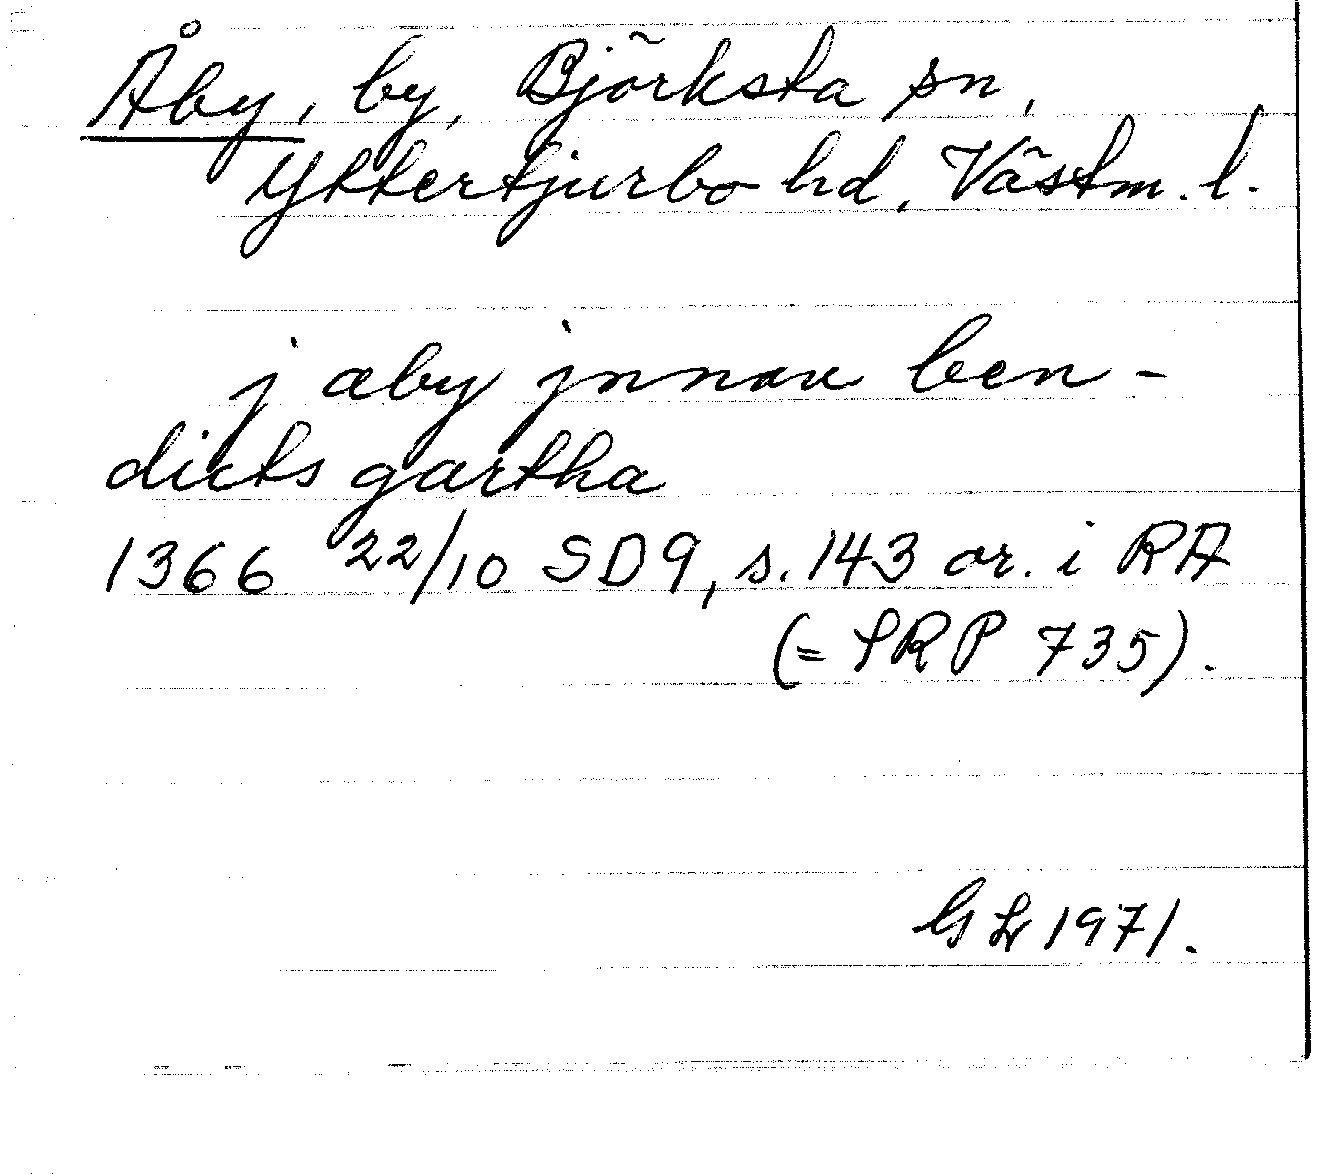 Åby, by, Björksta sn,
Yttertjurbo hd, Västm. l.
j aby jnnan ben-
dicts gartha
1366 22/10 SD9, s. 143 or. i RA
(= SRP 735).
1971.